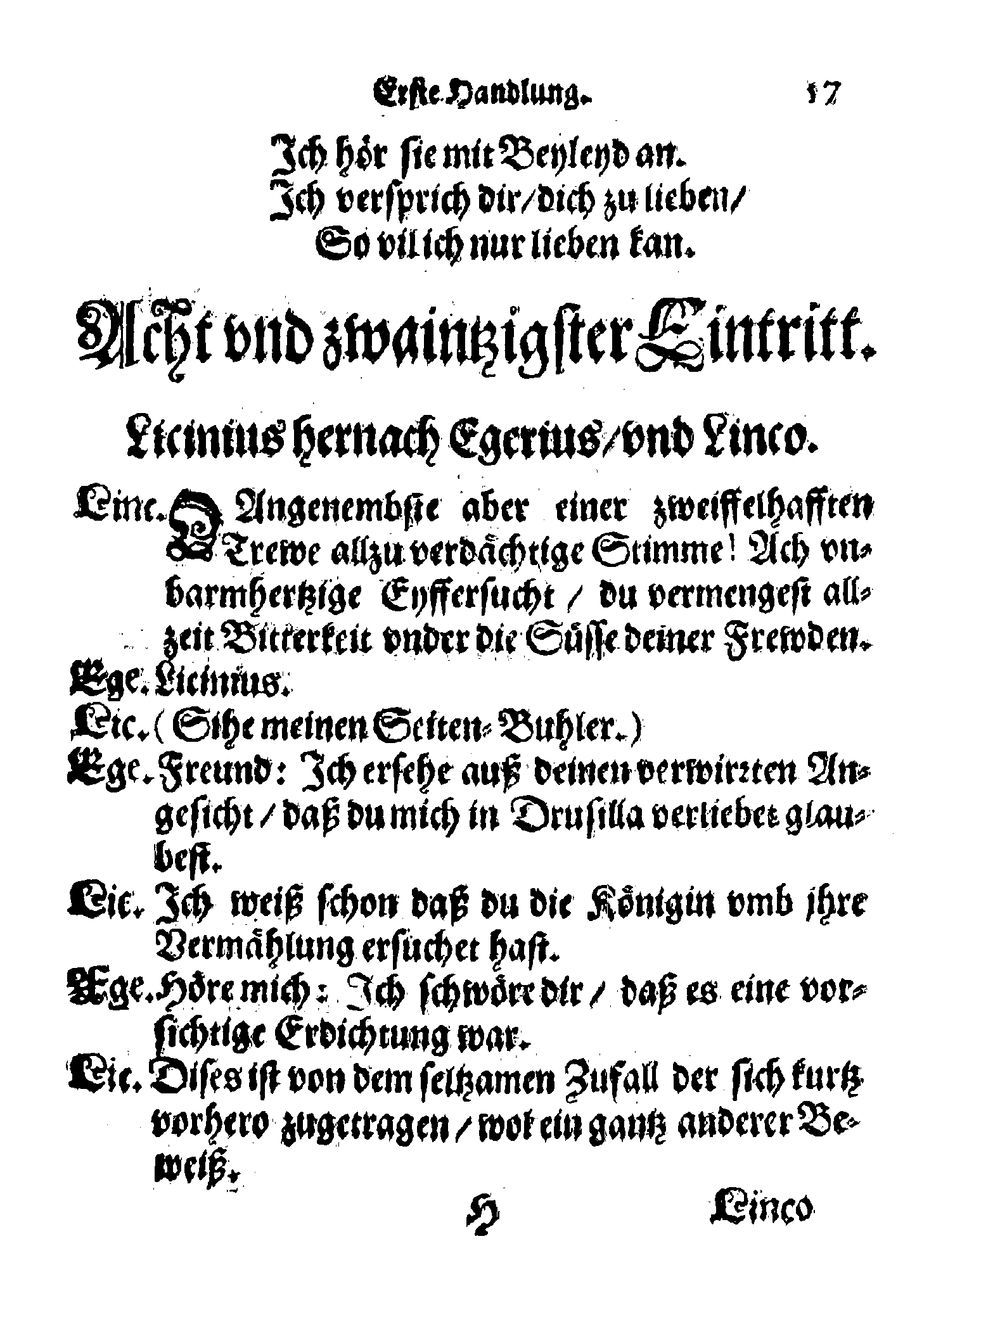 Erste Handlung. 17
Ich hör sie mit Beyleyd an.
Ich versprich dir/dich zu lieben/
So vil ich nur lieben kan.
Acht vnd zwaintzigster Eintritt.
Licinius hernach Egerius/vnd Linco.
Linc. O Angenembste aber einer zweiffelhafften
Trewe allzu verdächtige Stimme! Ach vn-
barmhertzige Eyffersucht / du vermengest all-
zeit Bitterkeit vnder die Süsse deiner Frewden.
Ege. Licinius.
Lic. (Sihe meinen Seiten-Buhler.)
Ege. Freund: Ich ersehe auß deinen verwirrten An-
gesicht / daß du mich in Drusilla verliebet glau-
best.
Lic. Ich weiß schon daß du die Königin vmb jhre
Vermählung ersuchet hast.
Ege. Höre mich: Ich schwöre dir / daß es eine vor-
sichtige Erdichtung war.
Lic. Dises ist von dem seltzamen Zufall der sich kurtz
vorhero zugetragen / wol ein gantz anderer Be-
weiß.
H Linco